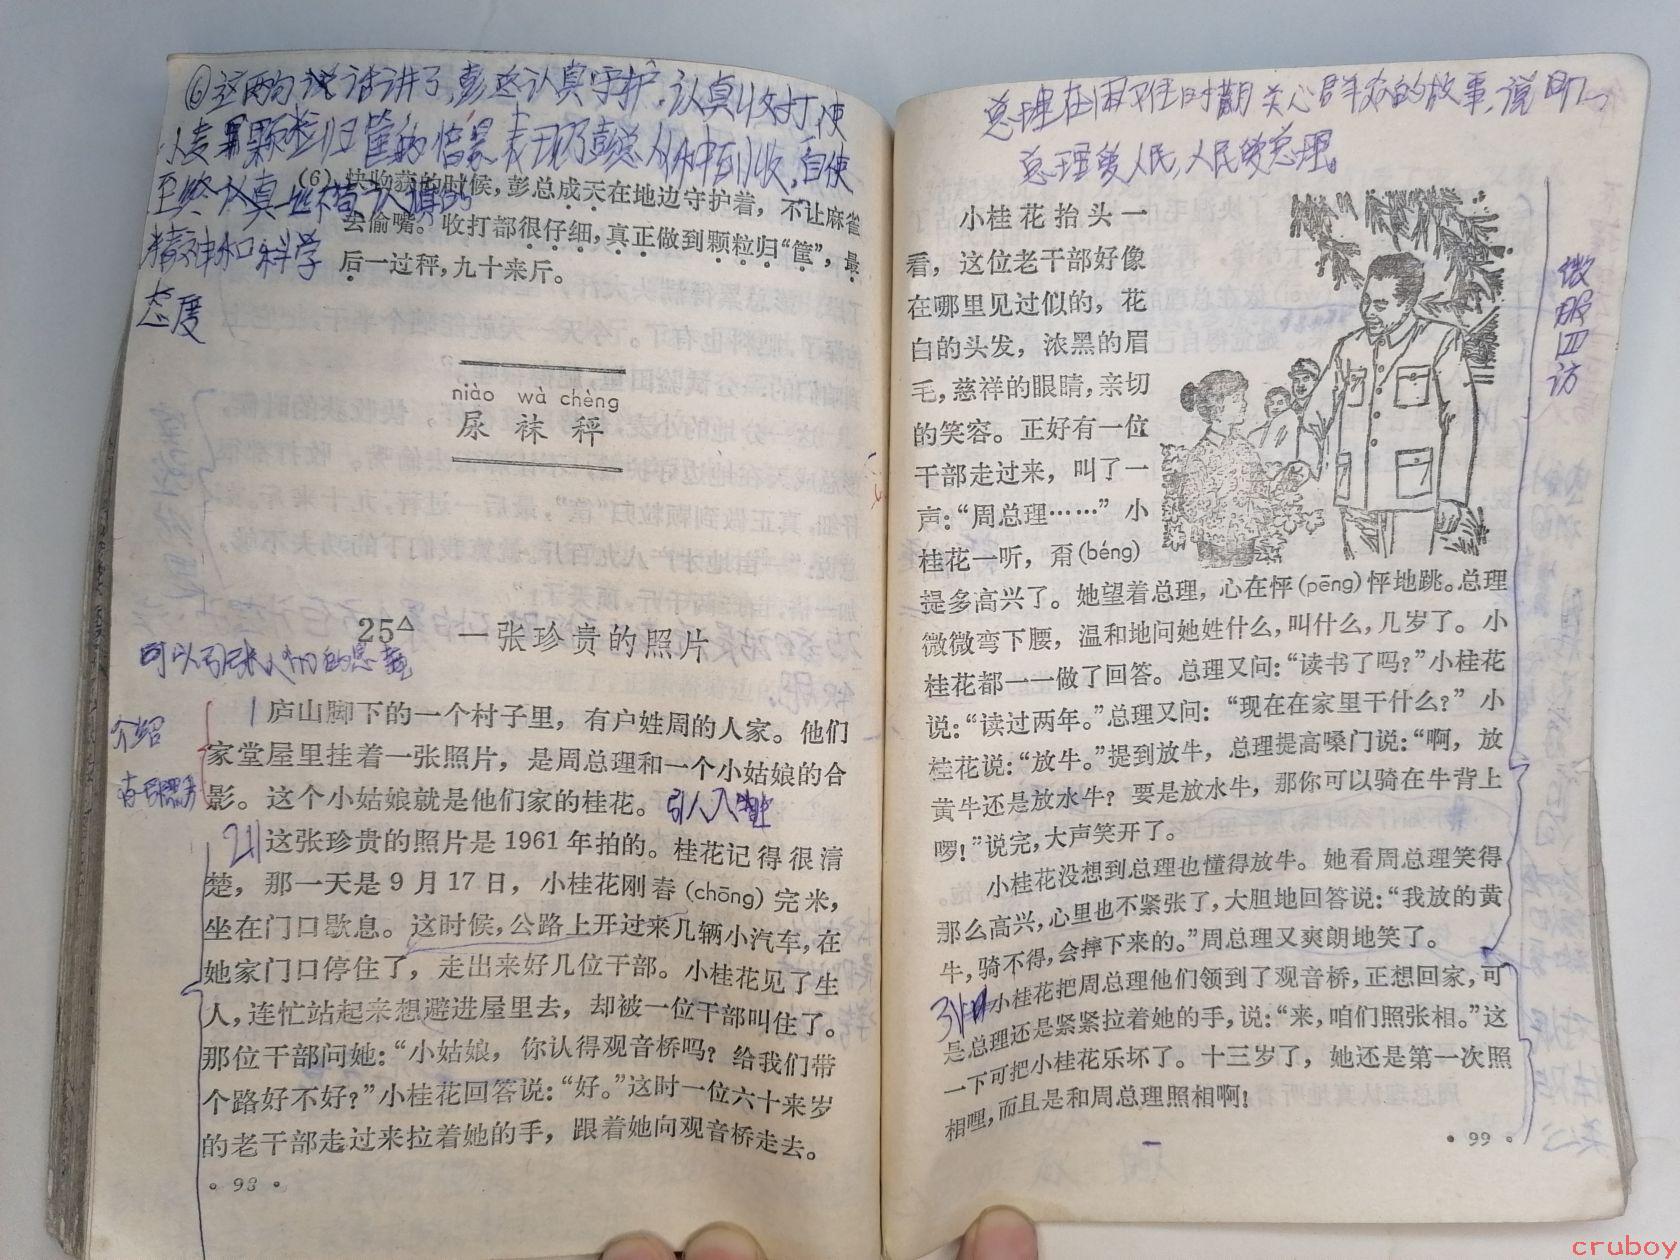 ⑥这两句话讲了,彭总认真守护,认真收打,使
小麦颗粒归筐的情景表现了彭总从种到收,自使
至终认真
精神和科学
态度
(6) 快收获的时候，彭总成天在地边守护着，不让麻雀
去偷嘴。收打都很仔细，真正做到颗粒归“筐”，最
后一过秤，九十来斤。
niào wà chèng
尿 袜 秤
25△ 一张珍贵的照片
可以引起人们的思
介绍
1 庐山脚下的一个村子里，有户姓周的人家。他们
家堂屋里挂着一张照片，是周总理和一个小姑娘的合
影。这个小姑娘就是他们家的桂花。引人入
2 这张珍贵的照片是1961年拍的。桂花记得很清
楚，那一天是9月17日，小桂花刚舂(chōng)完米，
坐在门口歇息。这时候，公路上开过来几辆小汽车，在
她家门口停住了，走出来好几位干部。小桂花见了生
人，连忙站起来想避进屋里去，却被一位干部叫住了。
那位干部问她：“小姑娘，你认得观音桥吗？给我们带
个路好不好？”小桂花回答说：“好。”这时一位六十来岁
的老干部走过来拉着她的手，跟着她向观音桥走去。
• 98 •
总理在 关心群众的故事,说明
总理爱人民,人民爱总理。
小桂花抬头一
看，这位老干部好像
在哪里见过似的，花
白的头发，浓黑的眉
毛，慈祥的眼睛，亲切
的笑容。正好有一位
干部走过来，叫了一
声：“周总理……”小
桂花一听，甭(béng)
提多高兴了。她望着总理，心在怦(pēng)怦地跳。总理
微微弯下腰，温和地问她姓什么，叫什么，几岁了。小
桂花都一一做了回答。总理又问：“读书了吗？”小桂花
说：“读过两年。”总理又问：“现在在家里干什么？”小
桂花说：“放牛。”提到放牛，总理提高嗓门说：“啊，放
黄牛还是放水牛？要是放水牛，那你可以骑在牛背上
啰！”说完，大声笑开了。
小桂花没想到总理也懂得放牛。她看周总理笑得
那么高兴，心里也不紧张了，大胆地回答说：“我放的黄
牛，骑不得，会摔下来的。”周总理又爽朗地笑了。
3 小桂花把周总理他们领到了观音桥，正想回家，可
是总理还是紧紧拉着她的手，说：“来，咱们照张相。”这
一下可把小桂花乐坏了。十三岁了，她还是第一次照
相哩，而且是和周总理照相啊！
• 99 •
微服四访
cruboy